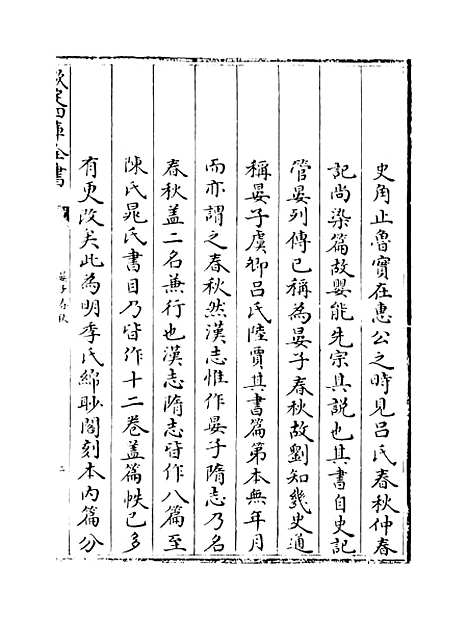 史角止魯實在惠公之時見呂氏春秋仲春
記尚染篇故嬰能先宗其說也其書自史記
管晏列傳已稱為晏子春秋故劉知幾史通
稱晏子虞卿呂氏陸賈其書篇第本無年月
而亦謂之春秋然漢志惟作晏子隋志乃名
春秋盖二名兼行也漢志隋志皆作八篇至
陳氏晁氏書目乃皆作十二卷盖篇帙已多
有更改矣此為明李氏綿眇閣刻本内篇分
欽定四庫全書
晏子春秋
二